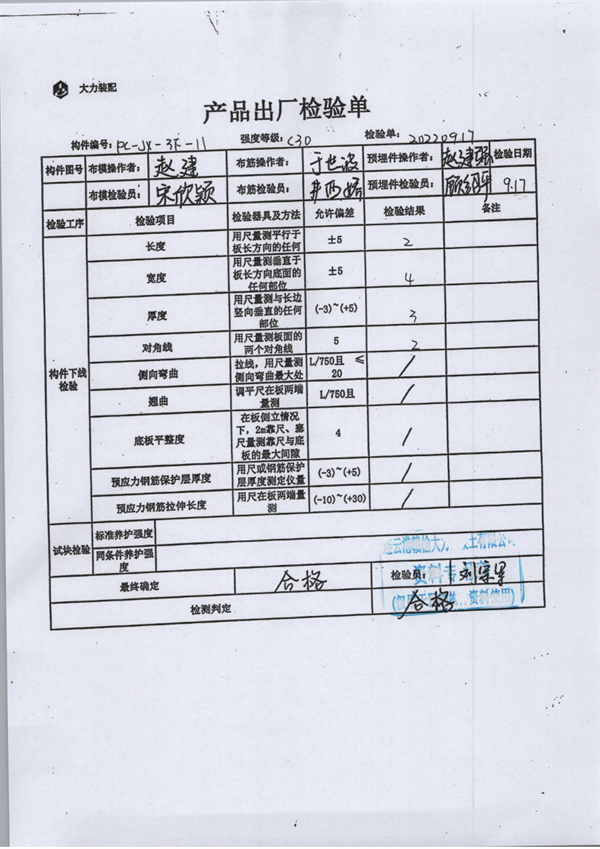 大力装配
产品出厂检验单
构件编号：PC-JX-3F-11 强度等级：C30 检验单：20220917
构件图号 布模操作者：赵建 布筋操作者：于世波 预埋件操作者：赵建强 检验日期
布模检验员：宋欣颖 布筋检验员： 预埋件检验员： 9.17
检验工序 检验项目 检验器具及方法 允许偏差 检验结果 备注
构件下线检验
长度 用尺量测平行于板长方向的任何 ±5 2
宽度 用尺量测垂直于板长方向底面的任何部位 ±5 4
厚度 用尺量测与长边竖向垂直的任何部位 (-3)~(+5) 3
对角线 用尺量测板面的两个对角线 5 2
侧向弯曲 拉线，用尺量测侧向弯曲最大处 L/750且≤20 /
翘曲 调平尺在板两端量测 L/750且 /
底板平整度 在板侧立情况下，2m靠尺、塞尺量测靠尺与底板的最大间隙 4 /
预应力钢筋保护层厚度 用尺或钢筋保护层厚度测定仪量 (-3)~(+5) /
预应力钢筋拉伸长度 用尺在板两端量测 (-10)~(+30) /
试块检验 标准养护强度
同条件养护强度
最终确定 合格 检验员：刘
检测判定 合格
资料专
资料使用)